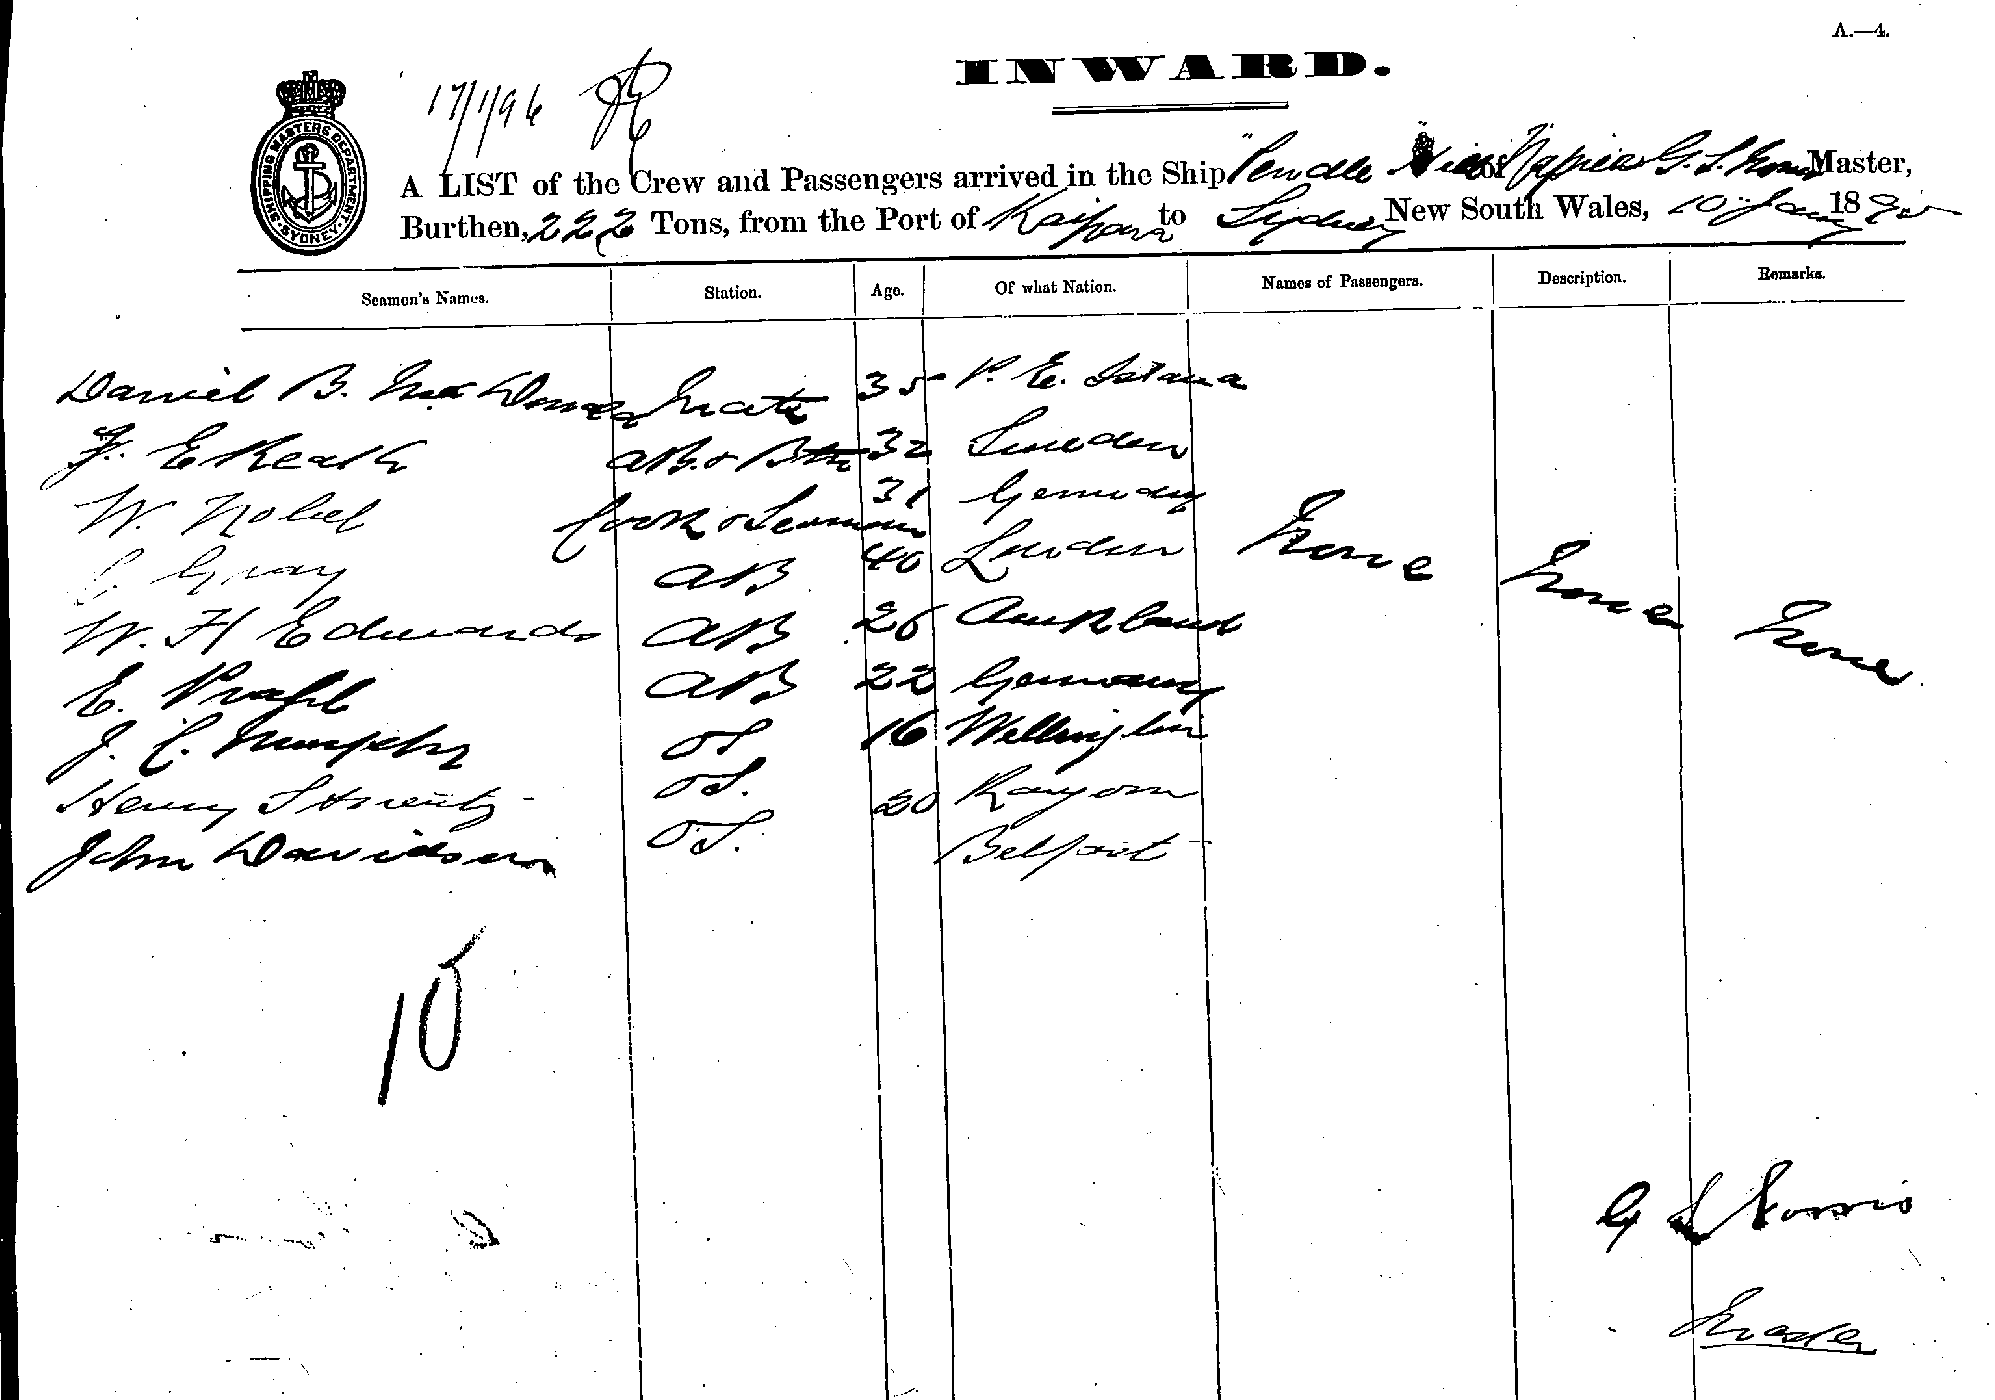 A.—4.
INWARD.
17/1/96
SHIPPING MASTERS DEPARTMENT SYDNEY
A LIST of the Crew and Passengers arrived in the Ship "Pendle Hill of Napier G. S. Master,
Burthen, 222 Tons, from the Port of Kaipara to Sydney New South Wales, 10 Jany 18
Seamen's Names. Station. Age. Of what Nation. Names of Passengers. Description. Remarks.
Daniel B. Mate 35 P. E. Island
F. A.B. & 32 Sweden
W. Nobel Cook & Seaman 31 Germany
Gray AB 40
W. H Edwards AB 26 Auckland
E. AB 22 Germany
J. C. Murphy OS. 16 Wellington
Henry OS. 20
John Davidson OS. Belfast
None None None
10
G S Norris
Master